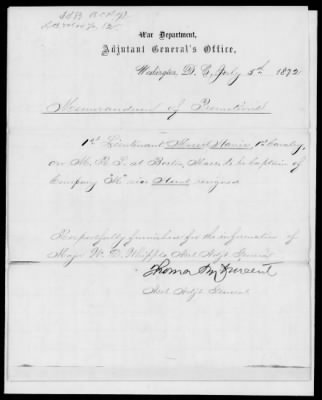 War Department,
Adjutant General's Office,
Washington, D. C., July 5th, 1872
Memorandum of Promotions
1st Lieutenant Moses Harris, 1st Cavalry,
on M. R. S. at Boston, Mass. to be Captain of
Company "M" vice resigned
Respectfully furnished for the information of
Major W. D. Whipple Asst Adjt General
Thomas M Vincent
Asst Adjt General